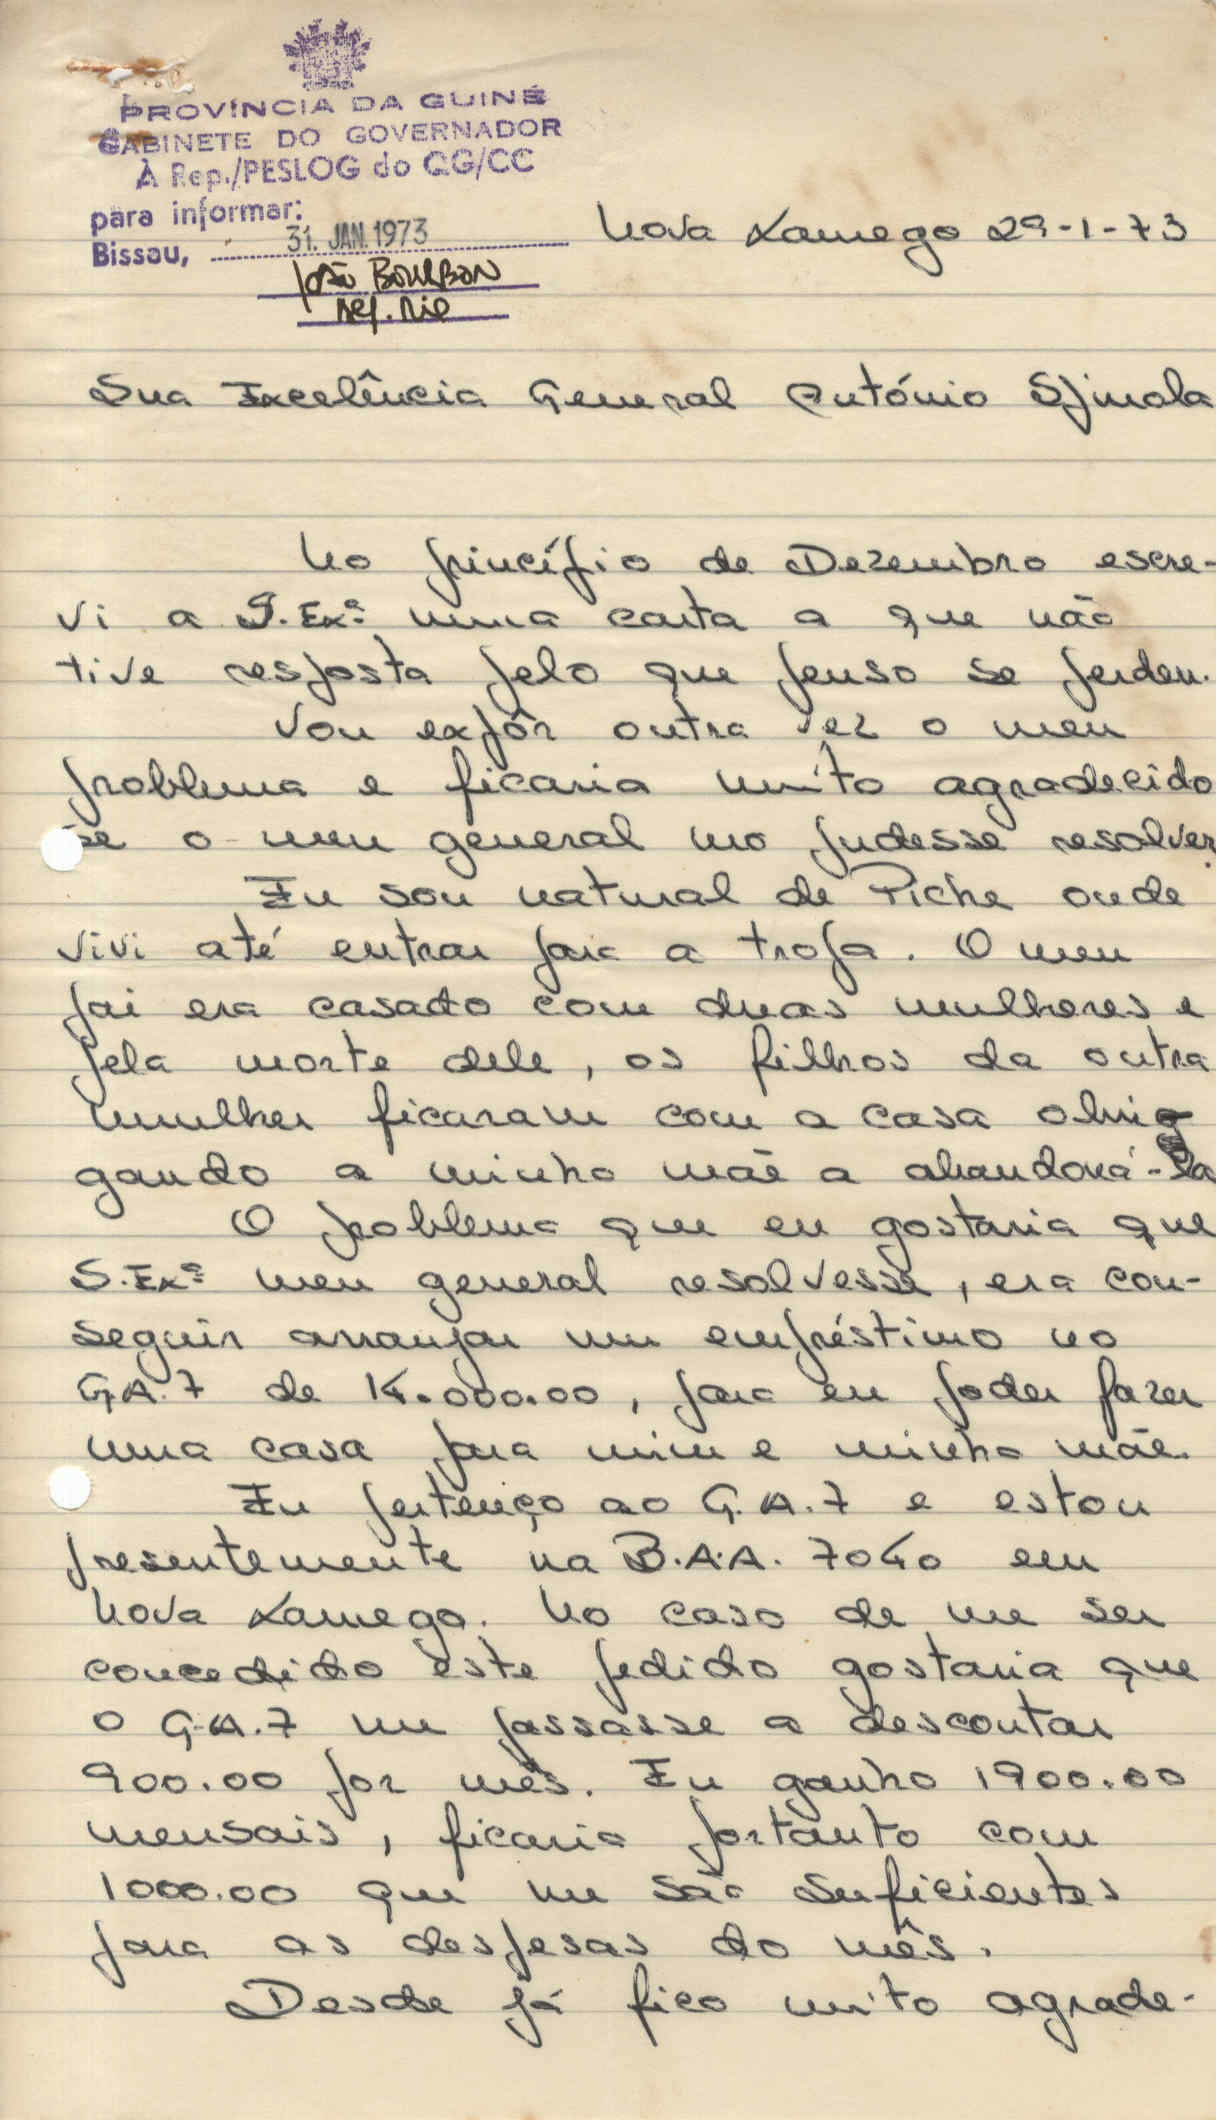 PROVÍNCIA DA GUINÉ
GABINETE DO GOVERNADOR
À Rep./PESLOG do QG/CC
para informar:
Bissau, 31. JAN. 1973
João Bourbon
Nova Lamego 29-1-73
Sua Excelência General António Spínola
No princípio de Dezembro escre-
vi a S. Exª uma carta a que não
tive resposta pelo que penso se perdeu.
Vou expôr outra vez o meu
problema e ficaria muito agradecido
se o meu general mo pudesse resolver.
Eu sou natural de Piche onde
vivi até entrar para a tropa. O meu
pai era casado com duas mulheres e
pela morte dele, os filhos da outra
mulher ficaram com a casa obrig
gando a minha mãe a abandoná-la
O problema que eu gostaria que
S. Exª meu general resolvesse, era con-
seguir arranjar um empréstimo no
G.A. 7 de 14.000.00, para eu poder fazer
uma casa para mim e minha mãe.
Eu pertenço ao G.A.7 e estou
presentemente na B.A.A. 7040 em
Nova Lamego. No caso de me ser
concedido este pedido gostaria que
o G.A.7 me passasse a descontar
900.00 por mês. Eu ganho 1900.00
mensais, ficaria portanto com
1000.00 que me são suficientes
para as despesas do mês.
Desde já fico muito agrade-